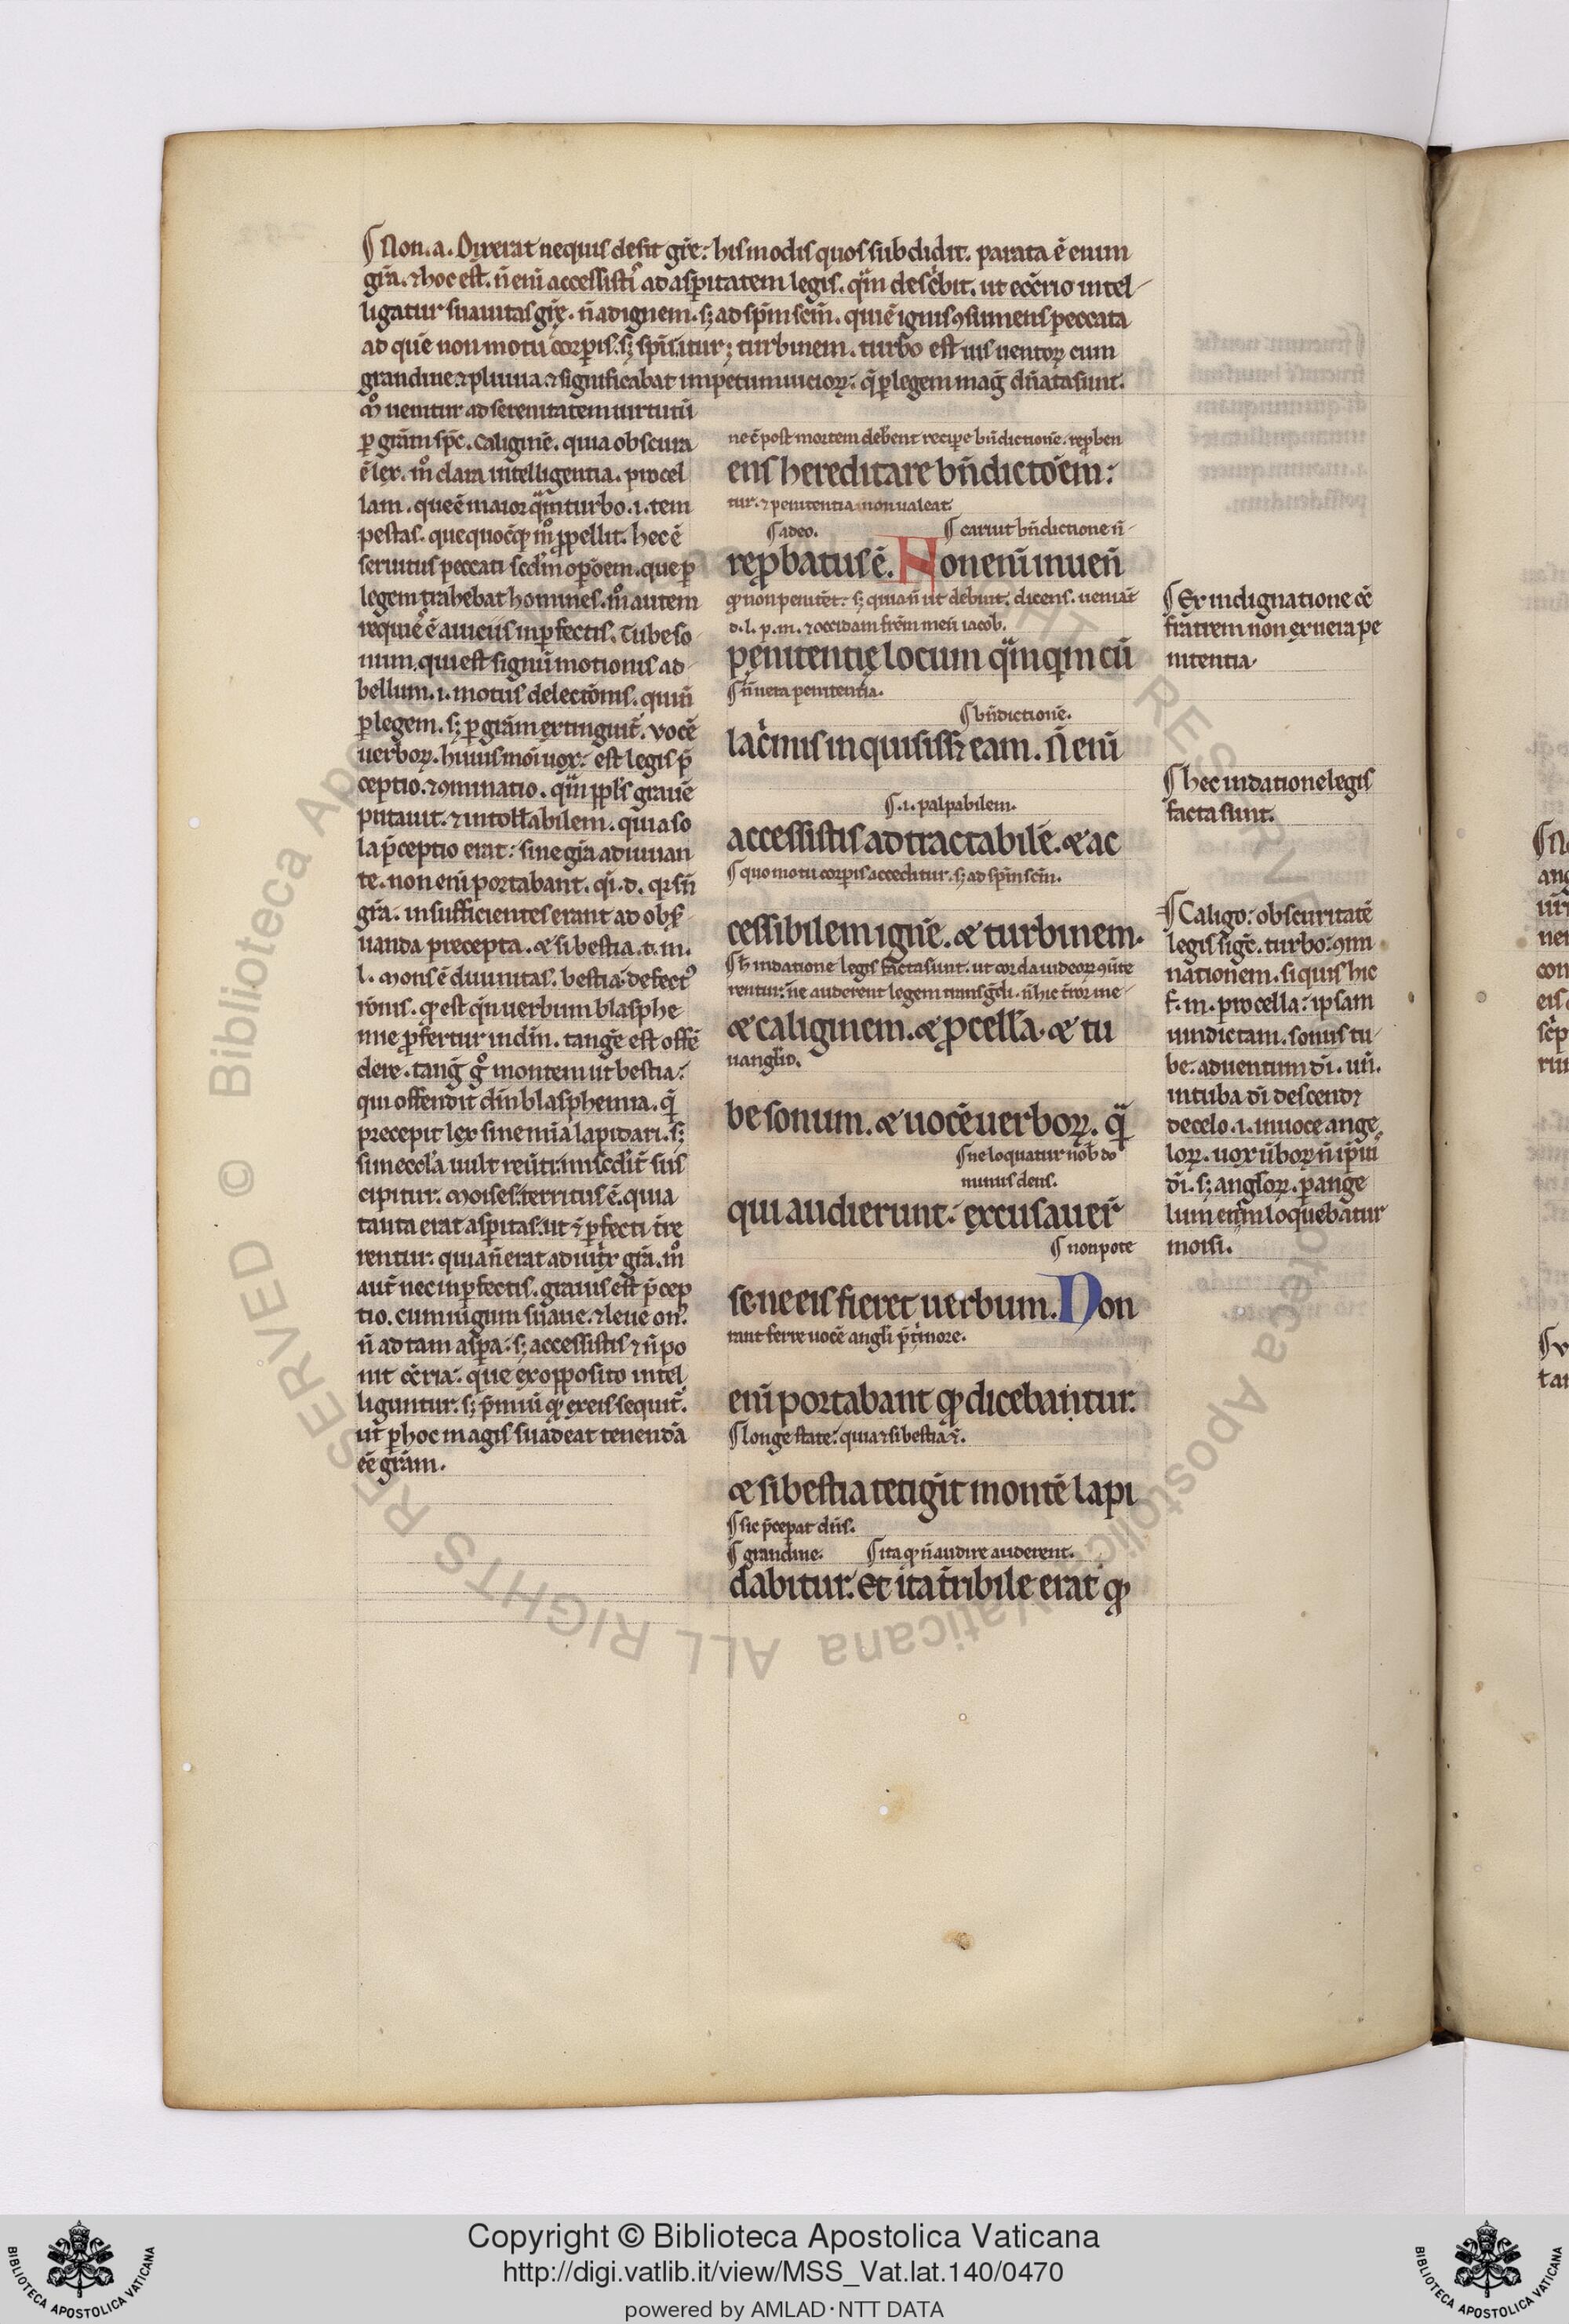 ¶ Non. a. Dixerat nequis desit gr̄e: his modis quos subdidit. parata ē enim
gr̄a. ⁊ hoc est. n̄ eni accessisti ad asperitatem legis.
ligatur suauitas gr̄ę. n̄ ad ignem. sꝫ ad sp̄m scm̄. qui ē ignis ꝯsumens peccata
ad quē non motu corꝑis. sꝫ sp̄s itur; turbinem. turbo est uis uentoꝝ cum
grandine ⁊ pluuia. ⁊ significabat impetum uicioꝝ: q̄ ꝑ legem maḡ dn̄ata sunt.
uenitur ad serenitatem uirtutū
ꝑ grām sp̄c. caliginē. quia obscura
ē lex. m̊ clara intelligentia. procel
lam. que ē maior turbo .i. tem
pestas. hec ē
seruitus peccati
legem trahebat homines. m̊ autem
requiē ē Tube so
num. qui est signū motionis ad
bellum .i. motus
ꝑ legem. sꝫ ꝑ grām extinguit̄. vocē
uerboꝝ. huius moi uox: est legis p̄
ceptio. ⁊ ꝯminatio. grauē
putauit. ⁊ intoll̄abilem. quia so
la p̄ceptio erat: sine gr̄a adiuuan
te. non eni portabant.
gr̄a. insufficientes erant ad obs̄
uanda precepta. ⁊ si bestia. t. m.
l. Mons ē diuinitas. bestia: defect᷒
est uerbum blasphe
mie ꝓfertur in dm̄. tangē est offē
dere. tanḡ montem ut bestia:
qui offendit dm̄ blasphemia.
precepit lex sine mīa lapidari. sꝫ
si in eccl̄a uult
cipitur. Moises territus ē. quia
tanta erat asperitas. ut ⁊ ꝑfecti
rentur: quia n̄ erat gr̄a. m̊
aut̄ nec inꝑfectis. grauis est p̄cep
tio. cum iugum suaue. ⁊ leue on᷒.
n̄ ad tam aspera: sꝫ accessistis ⁊ n̄ po
nit que ex opposito intel
liguntur. sꝫ ex eis sequit̄.
ut ꝑ hoc magis suadeat tenendā
eē grām.
ne ē post mortem debent recipe bn̄dictionē. reproben
ens hereditare bn̄dictōem:
tur. ⁊ penitentia non ualeat.
¶ a deo. ¶ cariut bn̄dictione n̄
reꝓbatus ē. Non eni inuen̄
ꝙ non penitēt: sꝫ quia n̄ ut debuit. dicens. ueniāt
d. l. p. m. ⁊ occidam frēm meū iacob.
penitentię locum cū
¶ n̄ uera penitentia.
¶ bn̄dictionē.
lac̄mis inquisiss̄ eam. N̄ eni
¶ .i. palpabilem.
accessistis ad tractabilē. ⁊ ac
¶ quo motu corꝑis acceditur. sꝫ ad sp̄m scm̄.
cessibilem ignē. ⁊ turbinem.
¶ h̄ in datione legis facta sunt. ut corda iudeoꝝ ꝯt̄e
rentur: ne auderent legem transḡdi. n̄ hic t̄ror in e
⁊ caliginem. ⁊ ꝓcell̄a. ⁊ tu
uangl̄io.
be sonum. ⁊ uocē uerboꝝ. q̄
¶ ne loquatur nob̄ do
minus deus.
qui audierunt: excusauer̄
¶ non pote
se ne eis fieret uerbum. Non
rant ferre uocē angl̄i p̄ t̄more.
eni portabant ꝙ dicebantur.
¶ longe state: quia ⁊ si bestia ⁊c̄.
⁊ si bestia tetigit̄ montē lapi
¶ sic p̄ceperat dn̄s.
¶ grandine. ¶ ita ꝙ n̄ audire auderent.
dabitur. Et ita t̄ribile erat ꝙ
¶ Ex indignatione eē
fratrem non ex uera pe
nitentia.
¶ hec in datione legis
facta sunt.
¶ Caligo: obscuritatē
legis siḡc. turbo: ꝯmi
nationem. si quis hic
f. m. procella: ipsam
uindictam. sonus tu
be: aduentum dī. un̄.
in tuba dī descendꝫ
de celo .i. in uoce ange
loꝝ. uox ūboꝝ n̄
dī. sꝫ angl̄oꝝ. ꝑ ange
lum loquebatur
moisi.
Copyright © Biblioteca Apostolica Vaticana
http://digi.vatlib.it/view/MSS_Vat.lat.140/0470
powered by AMLAD·NTT DATA
BIBLIOTECA APOSTOLICA VATICANA
BIBLIOTECA APOSTOLICA VATICANA